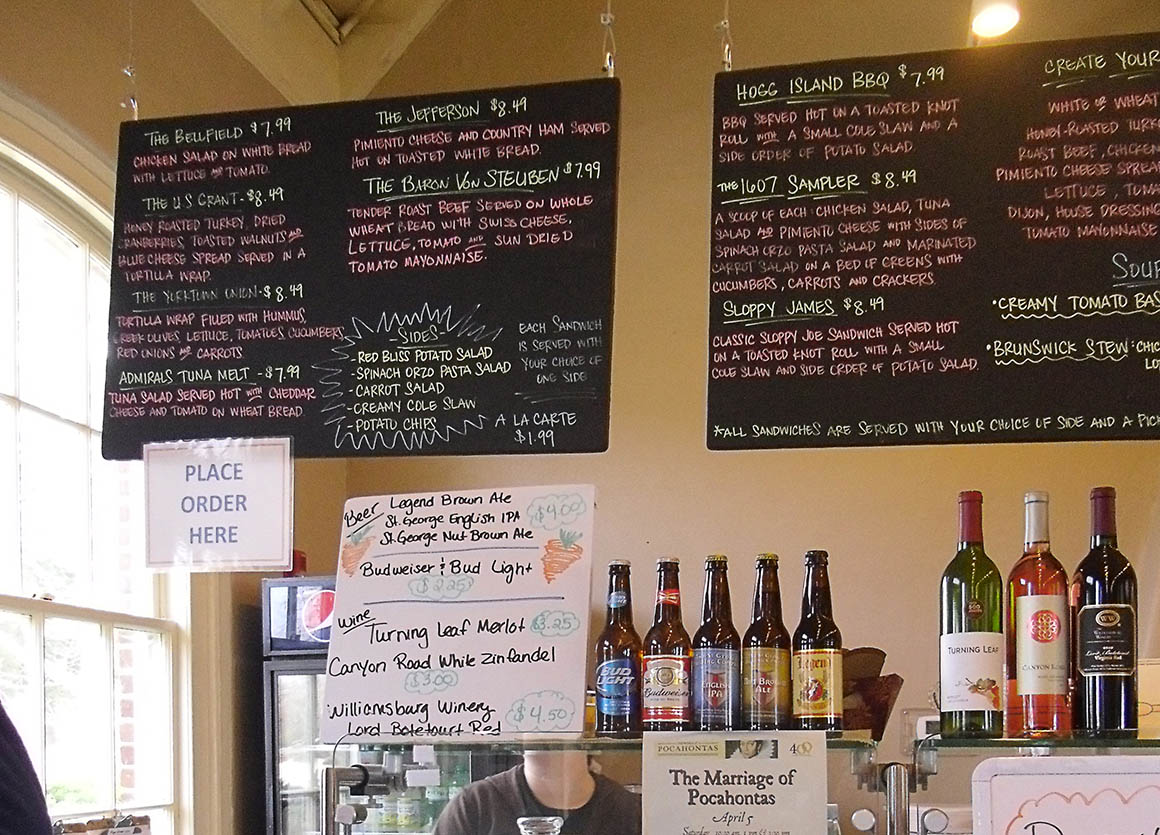 THE BELLFIELD $7.99
CHICKEN SALAD ON WHITE BREAD
WITH LETTUCE AND TOMATO.
THE U S GRANT - $8.49
HONEY ROASTED TURKEY, DRIED
CRANBERRIES, TOASTED WALNUTS AND
BLUE CHEESE SPREAD SERVED IN A
TORTILLA WRAP.
THE YORKTOWN UNION - $8.49
TORTILLA WRAP FILLED WITH HUMMUS,
GREEK OLIVES, LETTUCE, TOMATOES, CUCUMBERS,
RED ONIONS AND CARROTS
ADMIRALS TUNA MELT - $7.99
TUNA SALAD SERVED HOT WITH CHEDDAR
CHEESE AND TOMATO ON WHEAT BREAD.
THE JEFFERSON $8.49
PIMIENTO CHEESE AND COUNTRY HAM SERVED
HOT ON TOASTED WHITE BREAD.
THE BARON VON STEUBEN $7.99
TENDER ROAST BEEF SERVED ON WHOLE
WHEAT BREAD WITH SWISS CHEESE,
LETTUCE, TOMATO AND SUN DRIED
TOMATO MAYONNAISE.
-SIDES-
-RED BLISS POTATO SALAD
-SPINACH ORZO PASTA SALAD
-CARROT SALAD
-CREAMY COLE SLAW
-POTATO CHIPS
EACH SANDWICH
IS SERVED WITH
YOUR CHOICE OF
ONE SIDE
A LA CARTE
$1.99
HOGG ISLAND BBQ $7.99
BBQ SERVED HOT ON A TOASTED KNOT
ROLL WITH A SMALL COLE SLAW AND A
SIDE ORDER OF POTATO SALAD
THE 1607 SAMPLER $8.49
A SCOUP OF EACH: CHICKEN SALAD, TUNA
SALAD AND PIMIENTO CHEESE WITH SIDES OF
SPINACH ORZO PASTA SALAD AND MARINATED
CARROT SALAD ON A BED OF GREENS WITH
CUCUMBERS, CARROTS AND CRACKERS.
SLOPPY JAMES $8.49
CLASSIC SLOPPY JOE SANDWICH SERVED HOT
ON A TOASTED KNOT ROLL WITH A SMALL
COLE SLAW AND SIDE ORDER OF POTATO SALAD.
CREATE YOUR
WHITE OR WHEAT
HONEY-ROASTED TURK
ROAST BEEF, CHICKEN
PIMIENTO CHEESE SPREA
LETTUCE, TOMA
DIJON, HOUSE DRESSING
TOMATO MAYONNAISE
SOUP
•CREAMY TOMATO BAS
•BRUNSWICK STEW: CHIC
*ALL SANDWICHES ARE SERVED WITH YOUR CHOICE OF SIDE AND A PICK
PLACE
ORDER
HERE
Beer Legend Brown Ale
St. George English IPA $4.00
St. George Nut Brown Ale
Budweiser & Bud Light
$2.25
Wine
Turning Leaf Merlot $3.25
Canyon Road White Zinfandel
$3.00
Williamsburg Winery
Lord Botetourt Red $4.50
BUD LIGHT
Budweiser
ENGLISH
IPA
NUT BROWN
ALE
Legend
TURNING LEAF
CANYON ROAD
POCAHONTAS
The Marriage of
Pocahontas
April 5